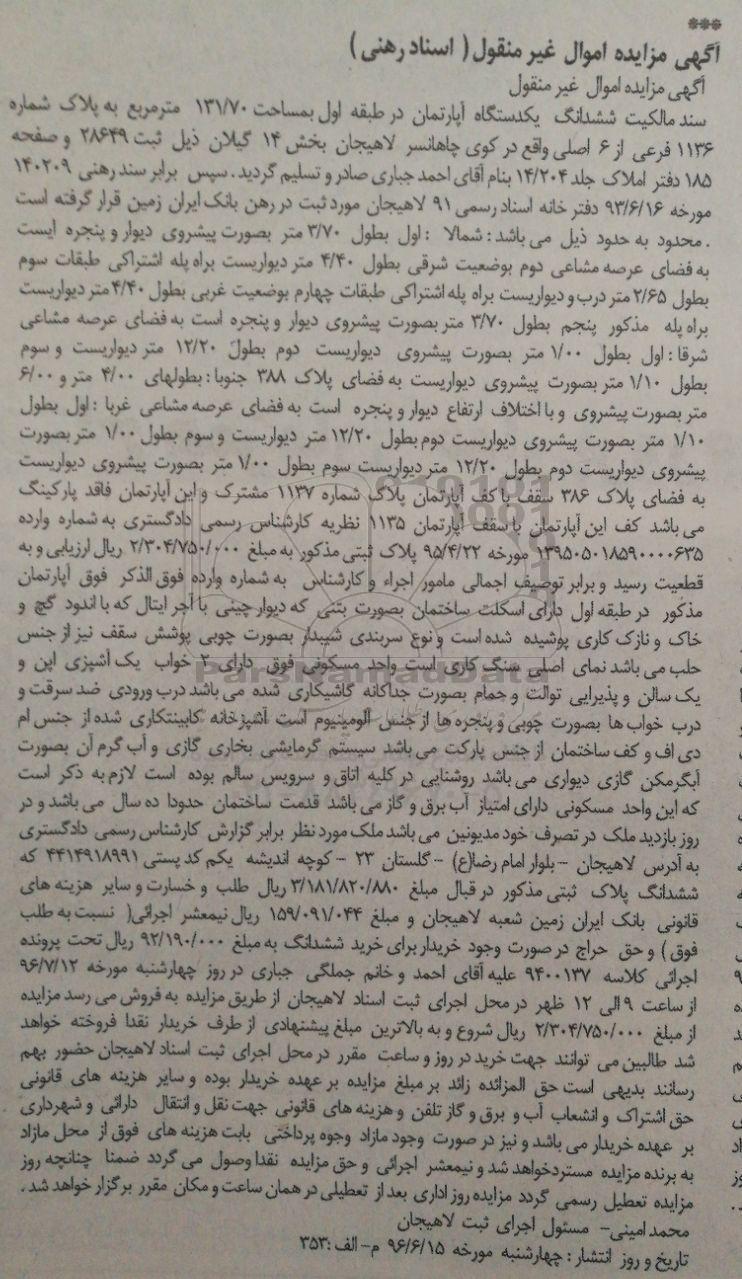 ***
آگهی مزایده اموال غیر منقول ( اسناد رهنی )
آگهی مزایده اموال غیر منقول
سند مالکیت ششدانگ یکدستگاه آپارتمان در طبقه اول بمساحت ۱۳۱/۷۰ مترمربع به پلاک شماره
۱۱۳۶ فرعی از ۶ اصلی واقع در کوی چاهانسر لاهیجان بخش ۱۴ گیلان ذیل ثبت ۲۸۶۴۹ و صفحه
۱۸۵ دفتر املاک جلد ۱۴/۲۰۴ بنام آقای احمد جباری صادر و تسلیم گردید . سپس برابر سند رهنی ۱۴۰۲۰۹
مورخه ۹۳/۶/۱۶ دفتر خانه اسناد رسمی ۹۱ لاهیجان مورد ثبت در رهن بانک ایران زمین قرار گرفته است
. محدود به حدود ذیل می باشد : شمالا : اول بطول ۳/۷۰ متر بصورت پیشروی دیوار و پنجره ایست
به فضای عرصه مشاعی دوم بوضعیت شرقی بطول ۴/۴۰ متر دیواریست براه پله اشتراکی طبقات سوم
بطول ۲/۶۵ متر درب و دیواریست براه پله اشتراکی طبقات چهارم بوضعیت غربی بطول ۴/۴۰ متر دیواریست
براه پله مذکور پنجم بطول ۳/۷۰ متر بصورت پیشروی دیوار و پنجره است به فضای عرصه مشاعی
شرقا : اول بطول ۱/۰۰ متر بصورت پیشروی دیواریست دوم بطول ۱۲/۲۰ متر دیواریست و سوم
بطول ۱/۱۰ متر بصورت پیشروی دیواریست به فضای پلاک ۳۸۸ جنوبا : بطولهای ۴/۰۰ متر و ۶/۰۰
متر بصورت پیشروی و با اختلاف ارتفاع دیوار و پنجره است به فضای عرصه مشاعی غربا : اول بطول
۱/۱۰ متر بصورت پیشروی دیواریست دوم بطول ۱۲/۲۰ متر دیواریست و سوم بطول ۱/۰۰ متر بصورت
پیشروی دیواریست دوم بطول ۱۲/۲۰ متر دیواریست سوم بطول ۱/۰۰ متر بصورت پیشروی دیواریست
به فضای پلاک ۳۸۶ سقف با کف آپارتمان پلاک شماره ۱۱۳۷ مشترک و این آپارتمان فاقد پارکینگ
می باشد کف این آپارتمان با سقف آپارتمان ۱۱۳۵ نظریه کارشناس رسمی دادگستری به شماره وارده
۱۳۹۵۰۵۰۱۸۵۹۰۰۰۰۶۳۵ مورخه ۹۵/۴/۲۲ پلاک ثبتی مذکور به مبلغ ۲/۳۰۴/۷۵۰/۰۰۰ ریال ارزیابی و به
قطعیت رسید و برابر توصیف اجمالی مامور اجراء و کارشناس به شماره وارده فوق الذکر فوق آپارتمان
مذکور در طبقه اول دارای اسکلت ساختمان بصورت بتنی که دیوار چینی با آجر ایتال که با اندود گچ و
خاک و نازک کاری پوشیده شده است و نوع سربندی شیبدار بصورت چوبی پوشش سقف نیز از جنس
حلب می باشد نمای اصلی سنگ کاری است واحد مسکونی فوق دارای ۲ خواب یک آشپزی اپن و
یک سالن و پذیرایی توالت و حمام بصورت جداگانه کاشیکاری شده می باشد درب ورودی ضد سرقت و
درب خواب ها بصورت چوبی و پنجره ها از جنس آلومینیوم است آشپزخانه کابینتکاری شده از جنس ام
دی اف و کف ساختمان از جنس پارکت می باشد سیستم گرمایشی بخاری گازی و آب گرم آن بصورت
آبگرمکن گازی دیواری می باشد روشنایی در کلیه اتاق و سرویس سالم بوده است لازم به ذکر است
که این واحد مسکونی دارای امتیاز آب برق و گاز می باشد قدمت ساختمان حدودا ده سال می باشد و در
روز بازدید ملک در تصرف خود مدیونین می باشد ملک مورد نظر برابر گزارش کارشناس رسمی دادگستری
به آدرس لاهیجان – بلوار امام رضا(ع) – گلستان ۲۳ – کوچه اندیشه یکم کد پستی ۴۴۱۴۹۱۸۹۹۱ که
ششدانگ پلاک ثبتی مذکور در قبال مبلغ ۳/۱۸۱/۸۲۰/۸۸۰ ریال طلب و خسارت و سایر هزینه های
قانونی بانک ایران زمین شعبه لاهیجان و مبلغ ۱۵۹/۰۹۱/۰۴۴ ریال نیمعشر اجرائی( نسبت به طلب
فوق ) و حق حراج در صورت وجود خریدار برای خرید ششدانگ به مبلغ ۹۲/۱۹۰/۰۰۰ ریال تحت پرونده
اجرائی کلاسه ۹۴۰۰۱۳۷ علیه آقای احمد و خانم جملگی جباری در روز چهارشنبه مورخه ۹۶/۷/۱۲
از ساعت ۹ الی ۱۲ ظهر در محل اجرای ثبت اسناد لاهیجان از طریق مزایده به فروش می رسد مزایده
از مبلغ ۲/۳۰۴/۷۵۰/۰۰۰ ریال شروع و به بالاترین مبلغ پیشنهادی از طرف خریدار نقدا فروخته خواهد
شد طالبین می توانند جهت خرید در روز و ساعت مقرر در محل اجرای ثبت اسناد لاهیجان حضور بهم
رسانند بدیهی است حق المزائده زائد بر مبلغ مزایده بر عهده خریدار بوده و سایر هزینه های قانونی
حق اشتراک و انشعاب آب و برق و گاز تلفن و هزینه های قانونی جهت نقل و انتقال دارائی و شهرداری
بر عهده خریدار می باشد و نیز در صورت وجود مازاد وجوه پرداختی بابت هزینه های فوق از محل مازاد
به برنده مزایده مسترد خواهد شد و نیمعشر اجرائی و حق مزایده نقدا وصول می گردد ضمنا چنانچه روز
مزایده تعطیل رسمی گردد مزایده روز اداری بعد از تعطیلی در همان ساعت و مکان مقرر برگزار خواهد شد .
محمد امینی– مسئول اجرای ثبت لاهیجان
تاریخ و روز انتشار : چهارشنبه مورخه ۹۶/۶/۱۵ م– الف :۳۵۳
ParsNamadData